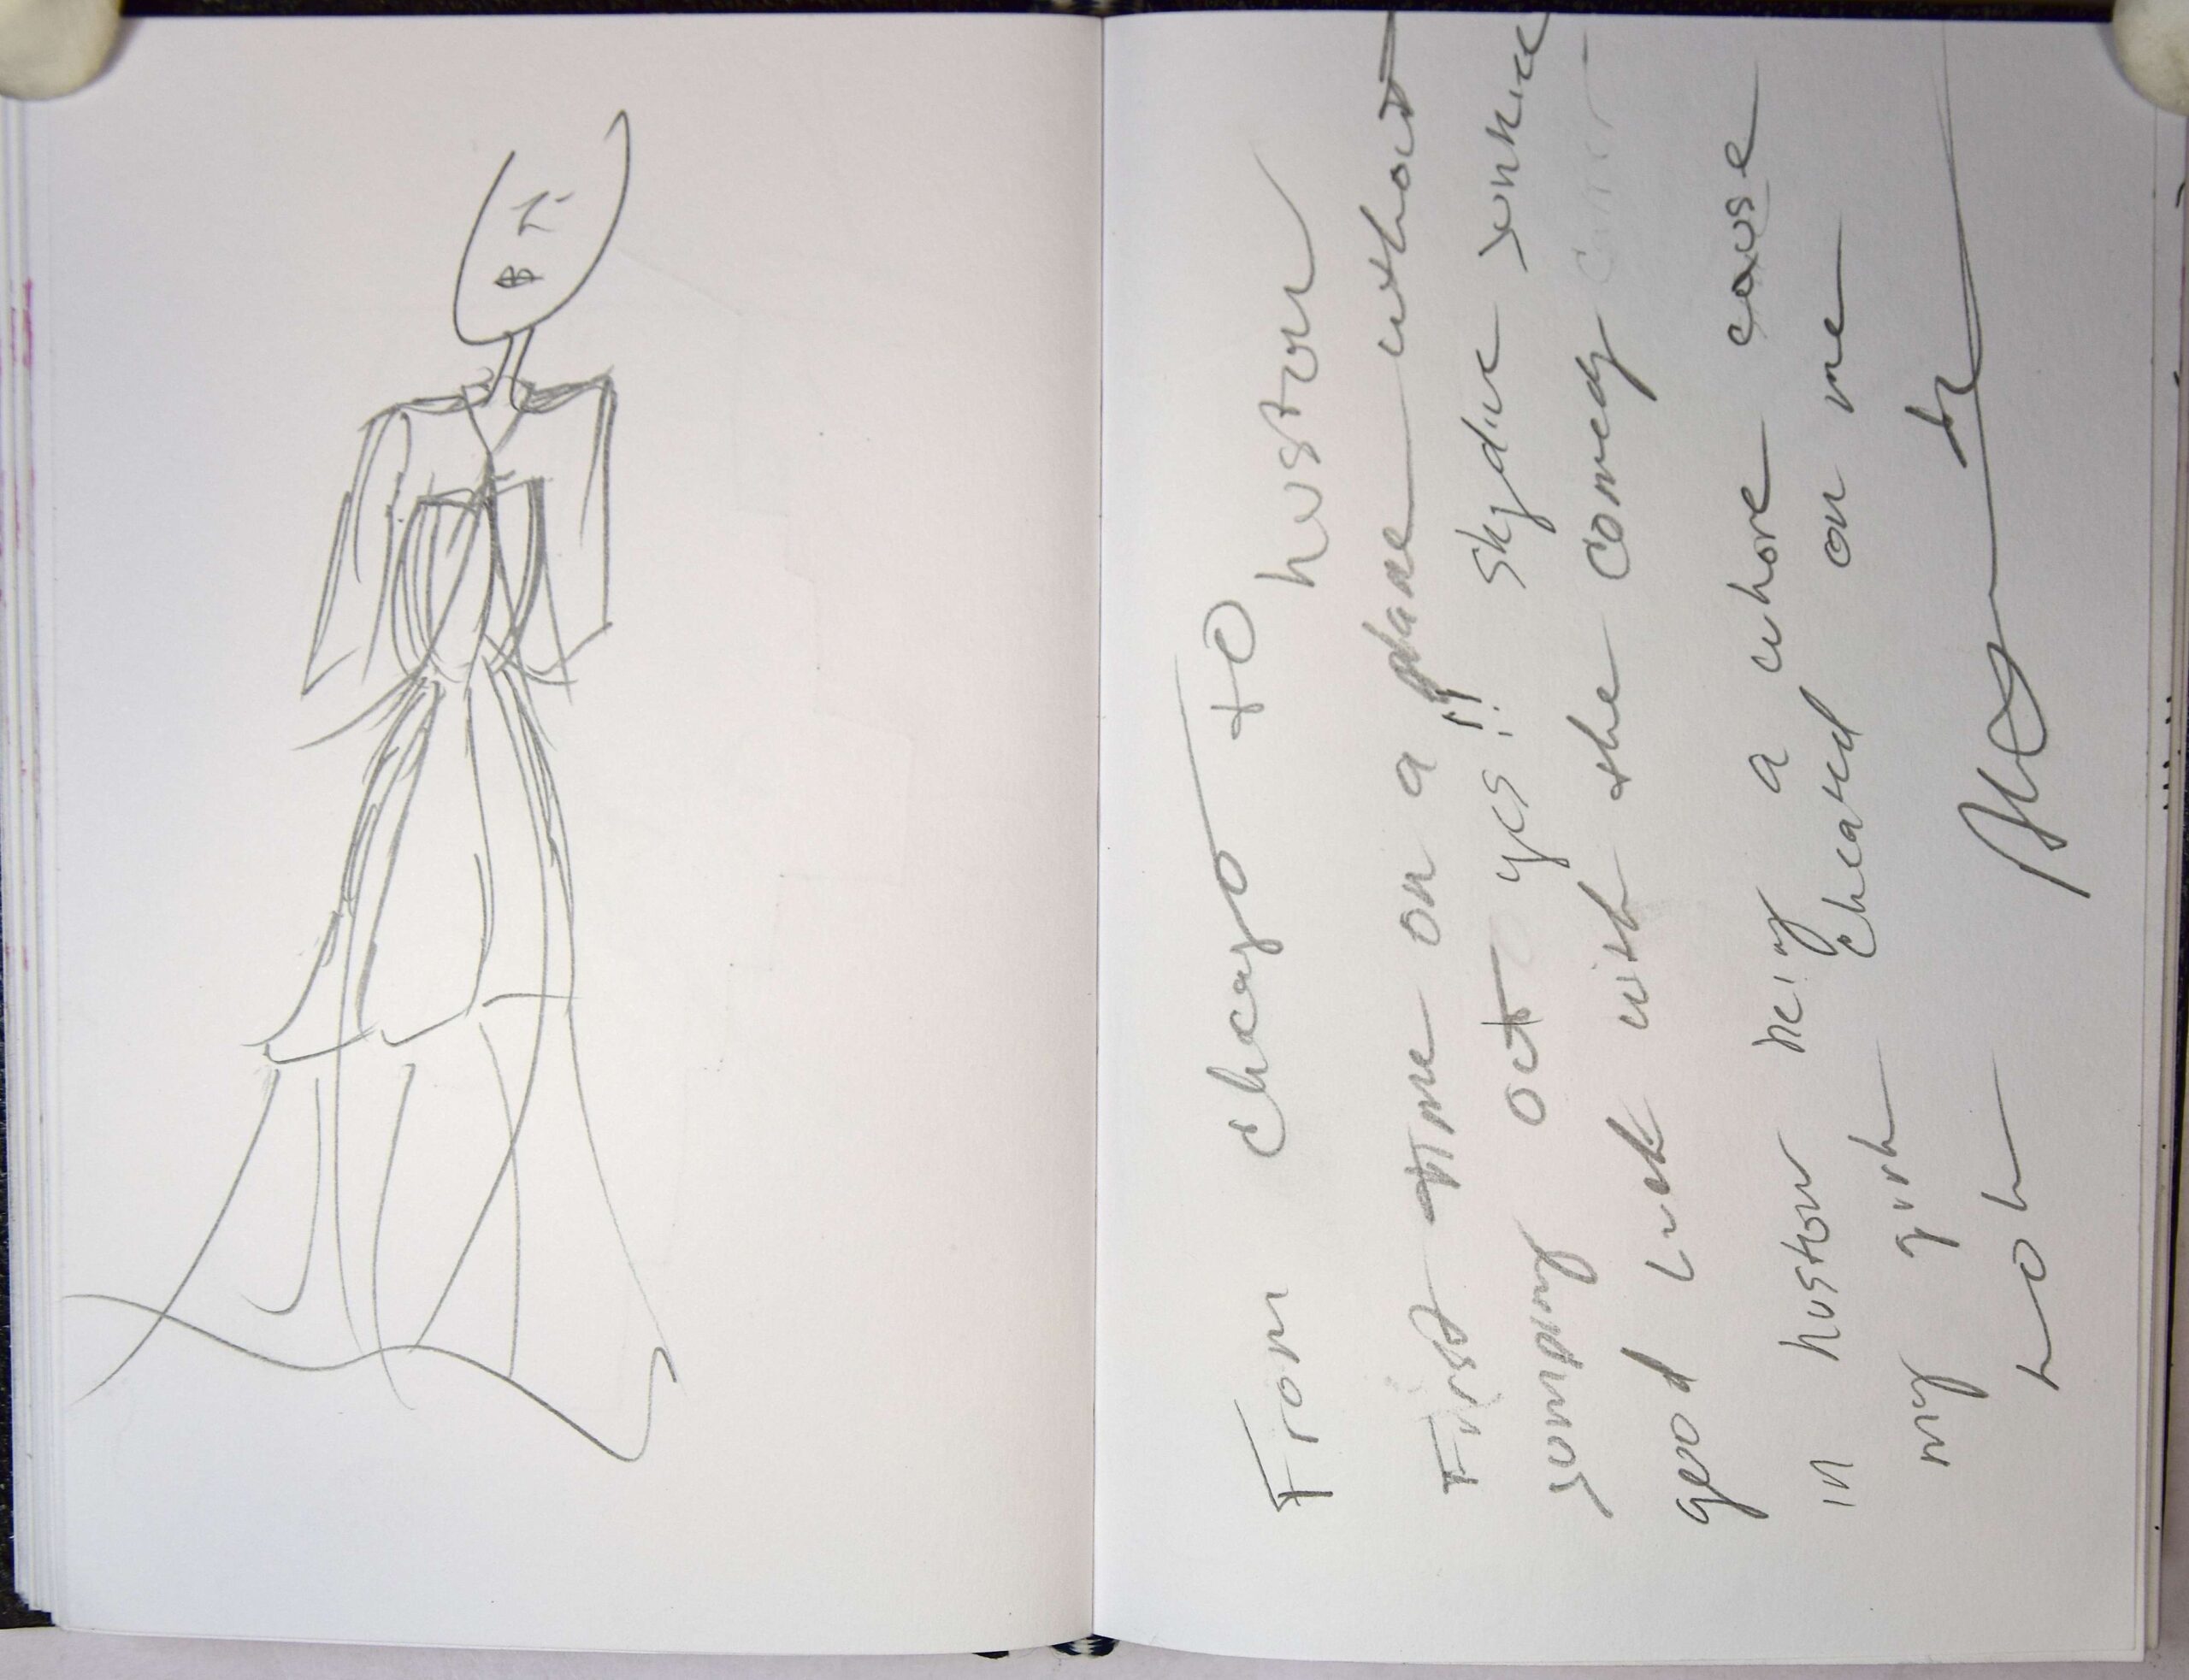 From chicago to huston
First time on a plane without
jumping out yes!! skydive junkie
good luck with the comedy career
in huston being a whore cause
my girl cheated on me
LOL